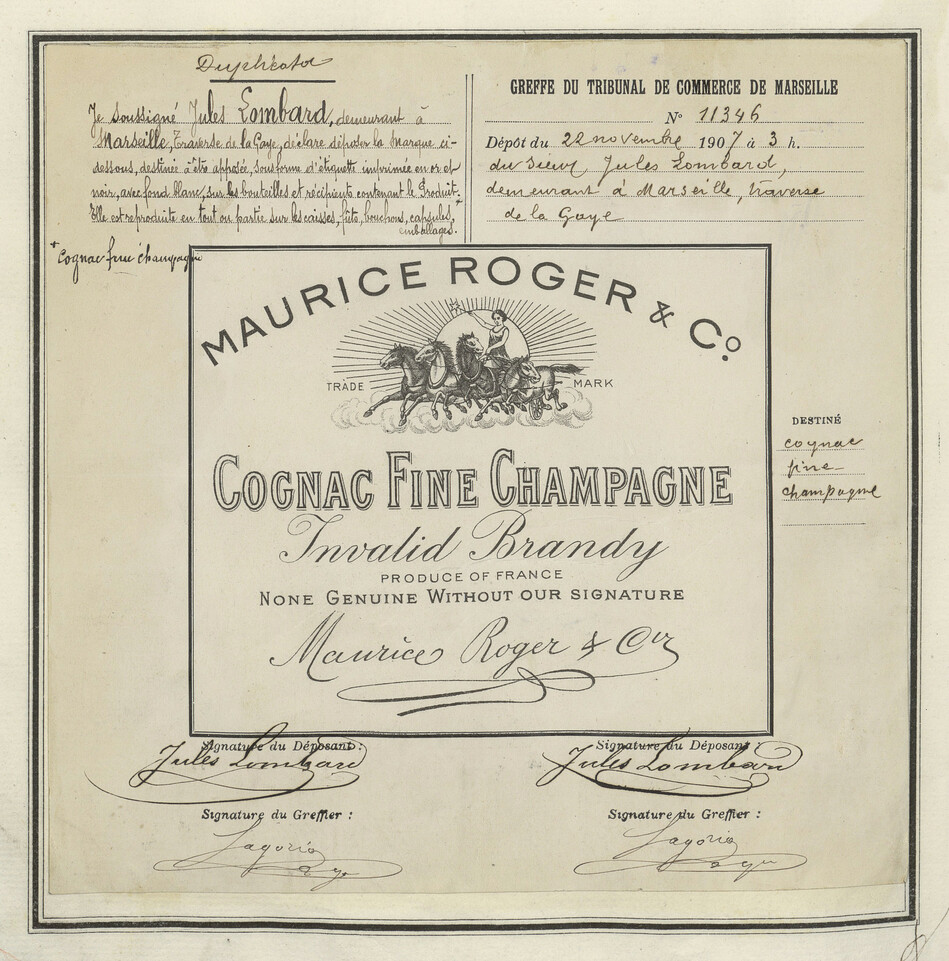 Duplicata
Je soussigné Jules Lombard, demeurant à
Marseille, Traverse de la Gaye, déclare déposer la marque ci-
dessous, destinée à être apposée, sous forme d'étiquette imprimée en or et
noir, avec fond blanc, sur les bouteilles et récipients contenant le Produit.+
Elle est reproduite en tout ou partie sur les caisses, fûts, bouchons, capsules,
emballages.
+ Cognac fine champagne
GREFFE DU TRIBUNAL DE COMMERCE DE MARSEILLE
No 11346
Dépôt du 22 novembre 1907 à 3 h.
du Sieur Jules Lombard,
demeurant à Marseille, traverse
de la Gaye
MAURICE ROGER & Co.
TRADE MARK
COGNAC FINE CHAMPAGNE
Invalid Brandy
PRODUCE OF FRANCE
NONE GENUINE WITHOUT OUR SIGNATURE
Maurice Roger & Cie
DESTINÉ
cognac
fine
champagne
Signature du Déposant:
Jules Lombard
Signature du Greffier :
Signature du Déposant :
Jules Lombard
Signature du Greffier :